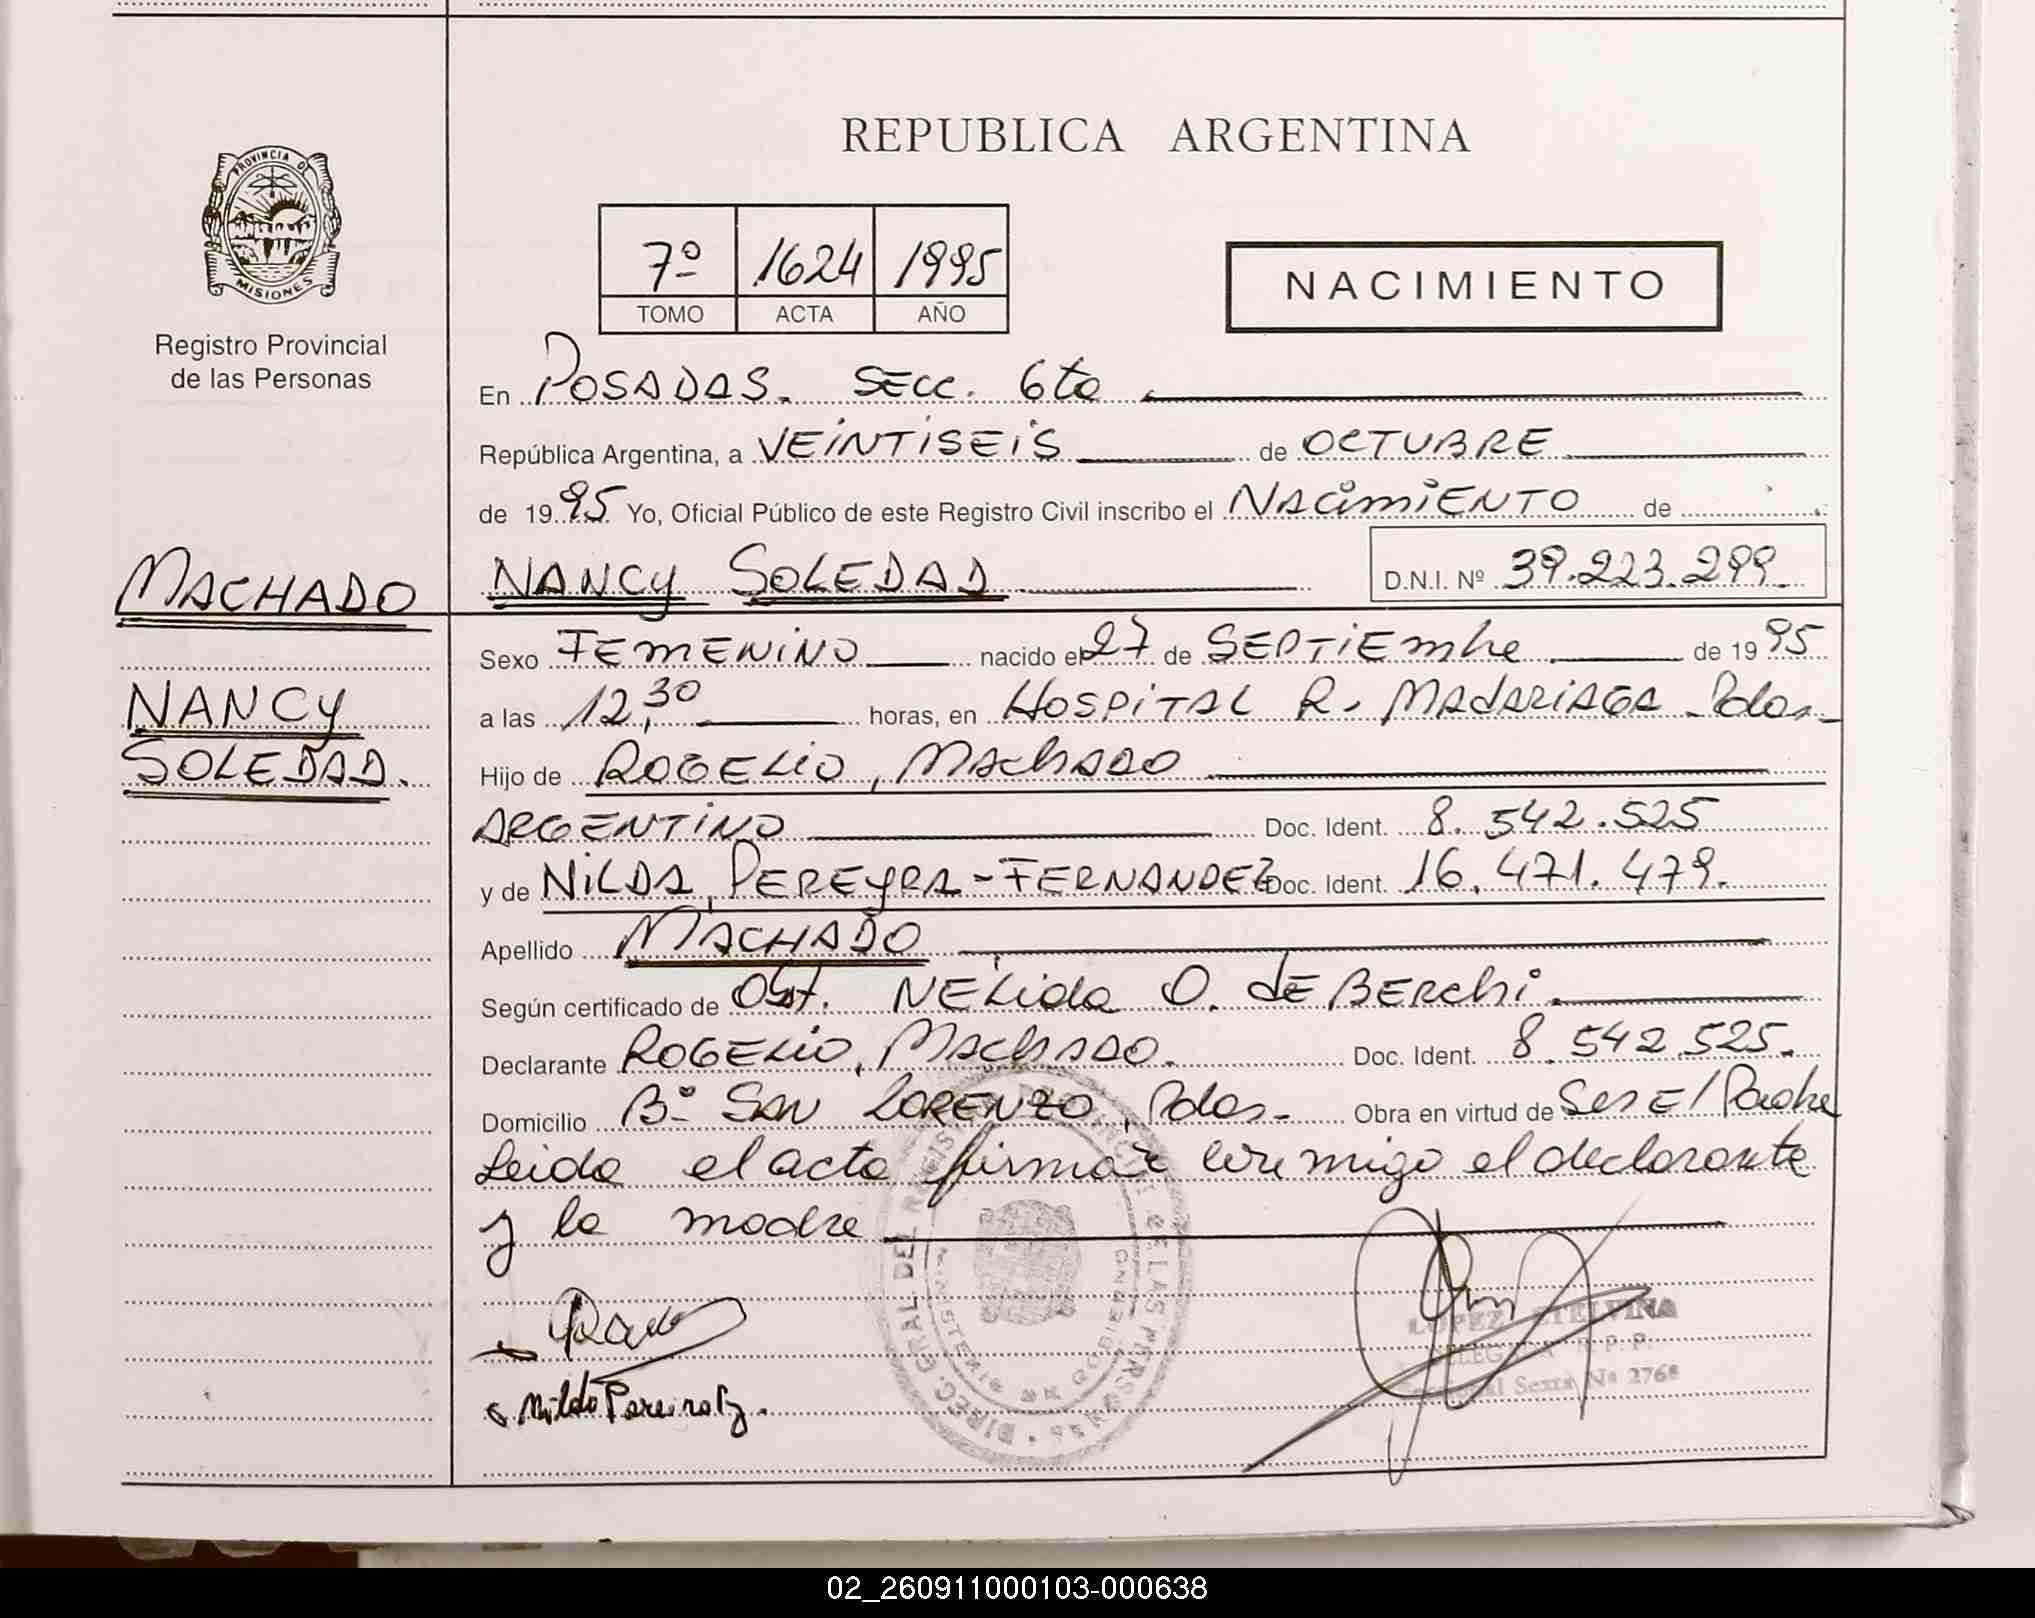 REPUBLICA ARGENTINA
PROVINCIA DE MISIONES
Registro Provincial
de las Personas
7º 1624 1995
TOMO ACTA AÑO
NACIMIENTO
En POSADAS. SECC. 6ta
República Argentina, a VEINTISEIS de OCTUBRE
de 1995 Yo, Oficial Público de este Registro Civil inscribo el NACIMIENTO de
MACHADO NANCY SOLEDAD D.N.I. Nº 39.223.299.
NANCY
SOLEDAD.
Sexo FEMENINO nacido el 27 de SEPTIEMbre de 1995
a las 12,30 horas, en HOSPITAL R. MADARIAGA - Pdas.
Hijo de ROGELIO, MACHADO
ARGENTINO Doc. Ident. 8.542.525
y de NILDA, PEREYRA-FERNANDEZ Doc. Ident. 16.471.479.
Apellido MACHADO
Según certificado de Obst. NELida O. dE BERchi.
Declarante ROGELIO, MACHADO. Doc. Ident. 8.542.525.
Domicilio Bº SAN LORENZO, Pdas. Obra en virtud de Ser El Padre
Leida el acta firman conmigo el declarante
y la madre
DIREC. GRAL DEL REGISTRO PROVINCIAL DE LAS PERSONAS
MINISTERIO DE GOBIERNO
LOPEZ ETELVINA
DELEGADA R.P.P.
Sexta Nº 2768
02_260911000103-000638